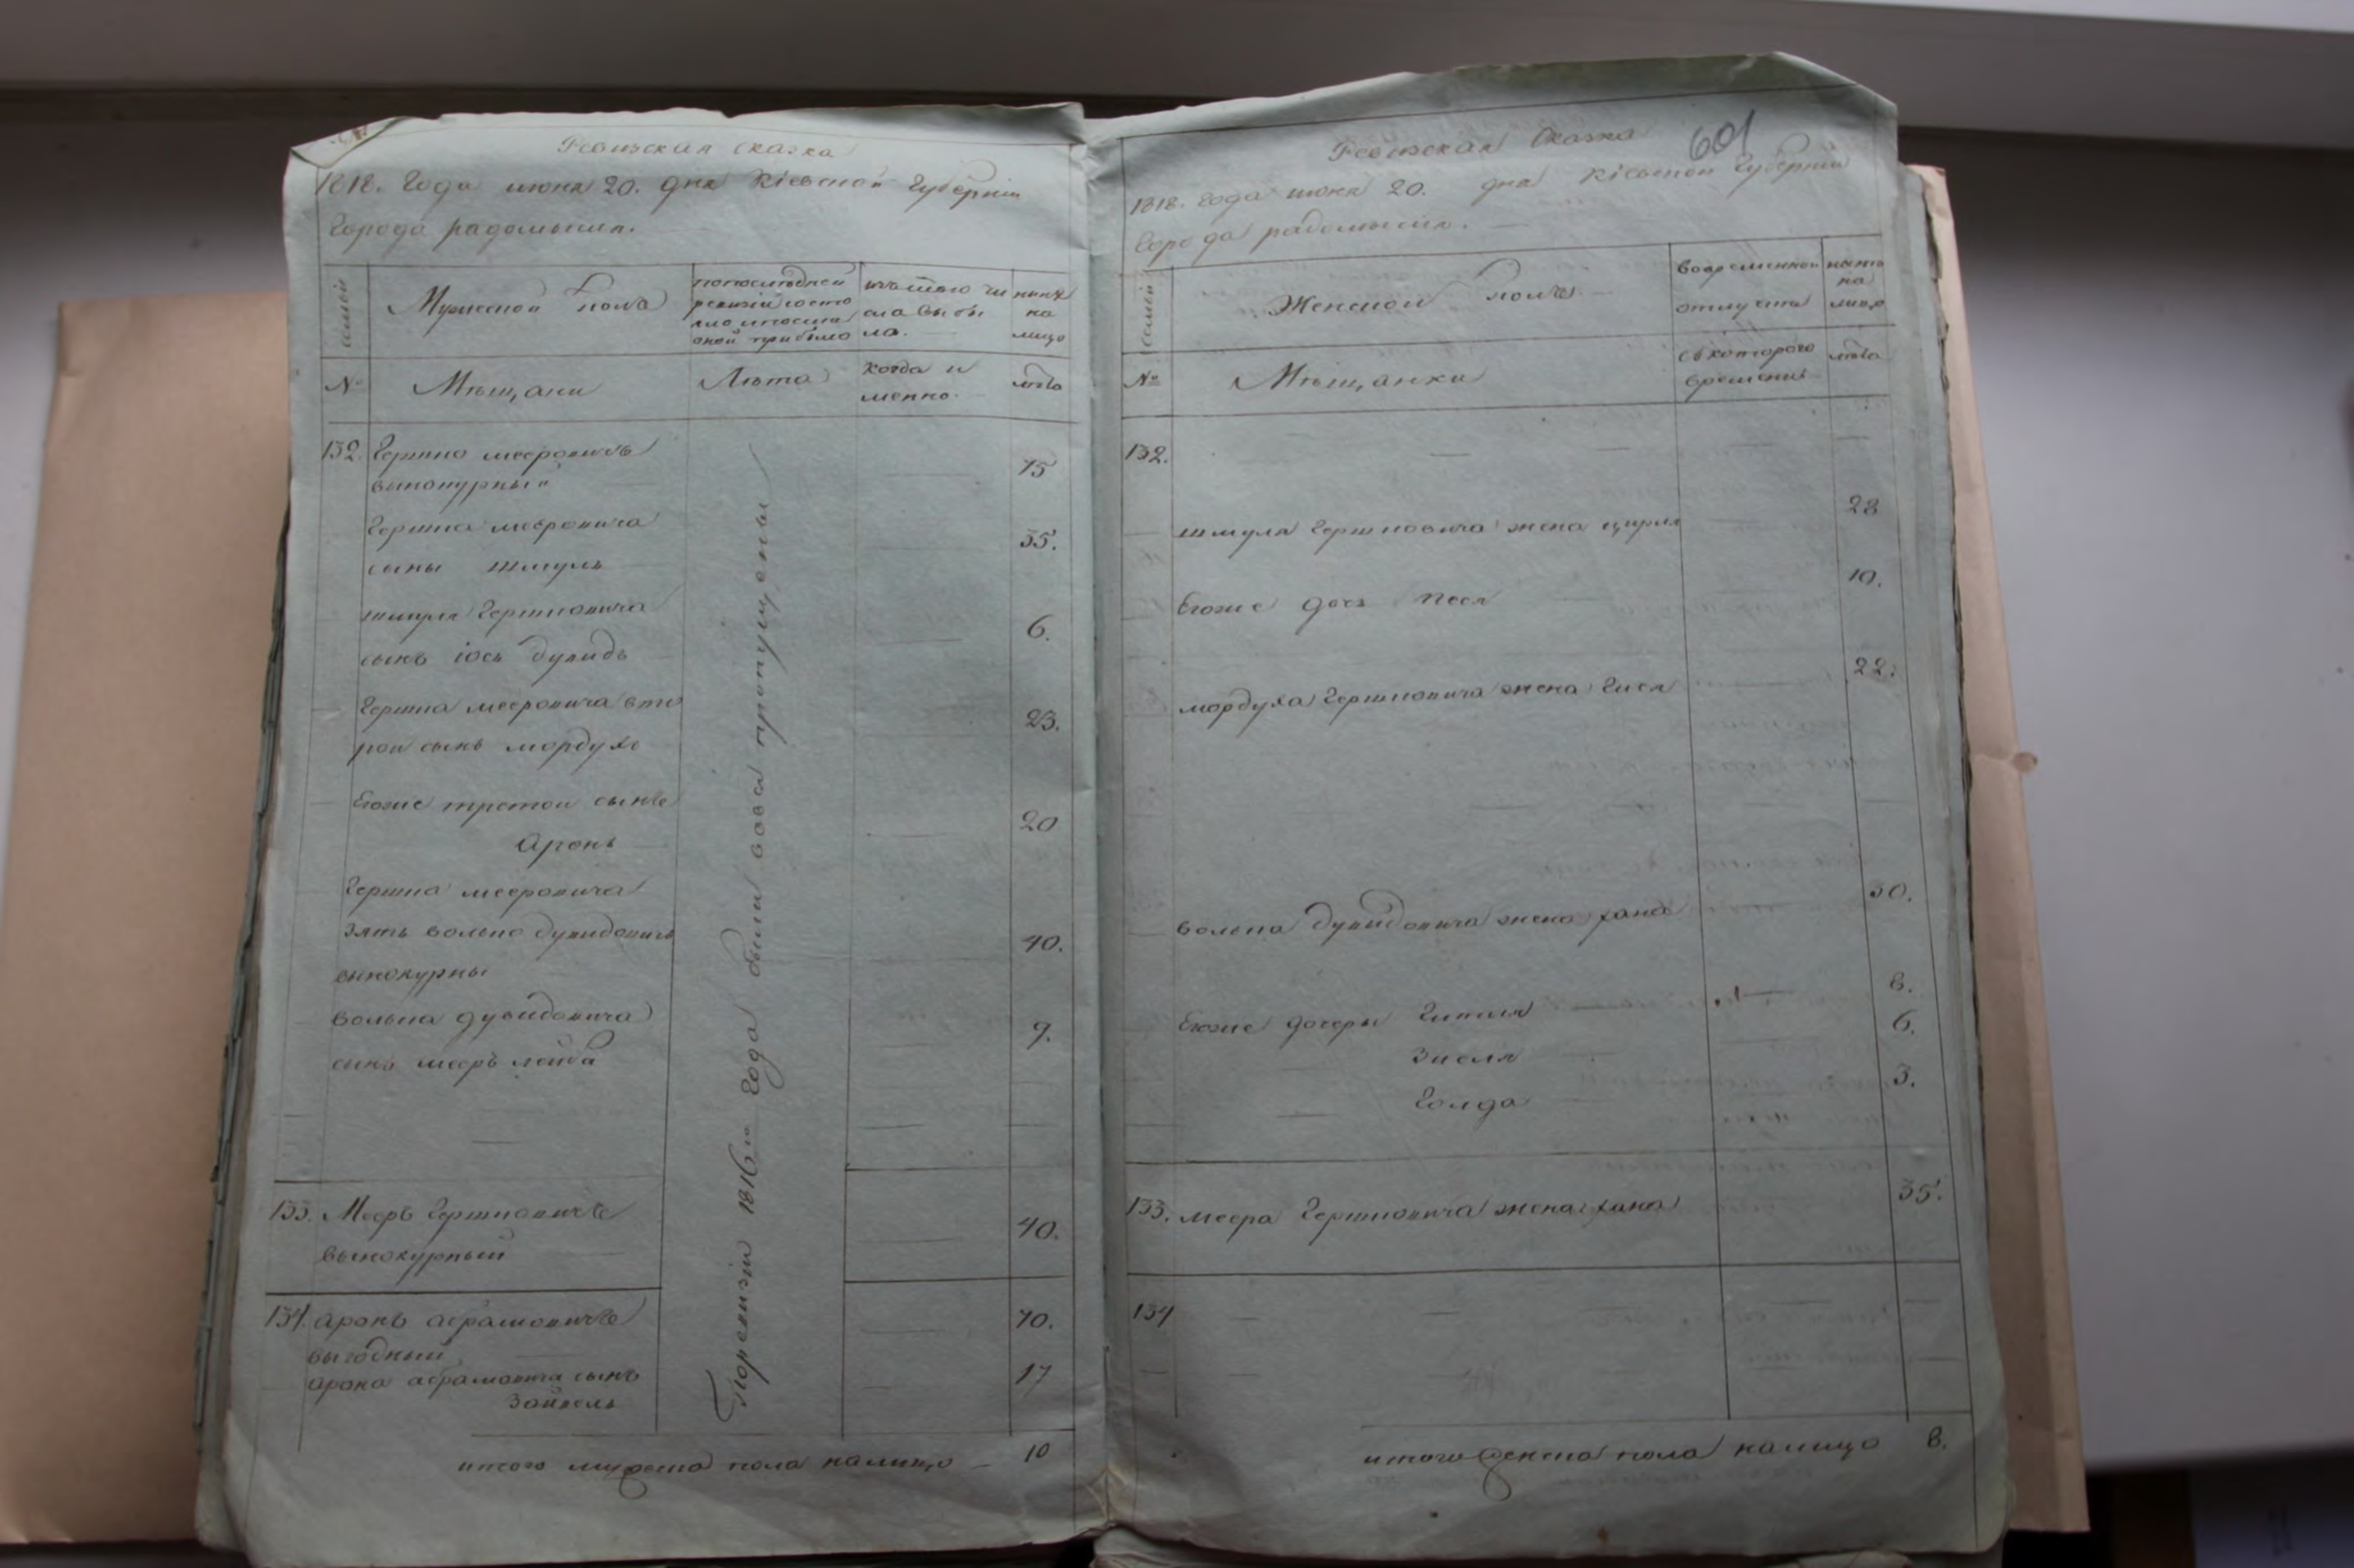 Ревизская Сказка
1818. Года июня 20. дня Кіевской Губерніи
Города радомысля.
семьи
Мужеской пола
по последней
ревизіи состо
яло и после
оной прибыло
из того чи
сла выбы
ло.
ныне
на
лицо
№
Мѣщани
Лѣта
когда и
менно.
лѣта
132. Гершко мееровичъ 75
вынокурный
Гершка мееровича
сыны шмуль 35.
шмуля Гершковича 6.
сынъ іось дувидъ
Гершка мееровича вто 23.
рой сынъ мордухъ
Егоже третой сынъ 20
Аронъ
Гершка мееровича
зять волько дувидовичъ 40.
вынокурны
волька дувидовича 9.
сынъ мееръ лейба
133. Мееръ Гершковичъ 40.
вынокурный
134. аронъ абрамовичъ 70.
выгодный
арона абрамовича сынъ 17
Зайвель
По ревизіи 1816го Года были вовся пропущены
итого мужеска пола налицо 10
601
Ревизская Сказка
1818. Года июня 20. дня Кіевской Губерніи
Города радомысля.
семьи
Женской пола
во временной
отлучке
ныне
на
лицо
№
Мѣщанки
съ которого
времени
лѣта
132.
шмуля Гершковича жена цирля 28
Егоже дочь песя 10.
мордуха Гершковича жена Гися 22.
волька дувидовича жена хана 30.
Егоже дочеры Гитля 8.
Зисля 6.
Голда 3.
133. меера Гершковича жена хана 35.
134
итого женска пола налицо 8.